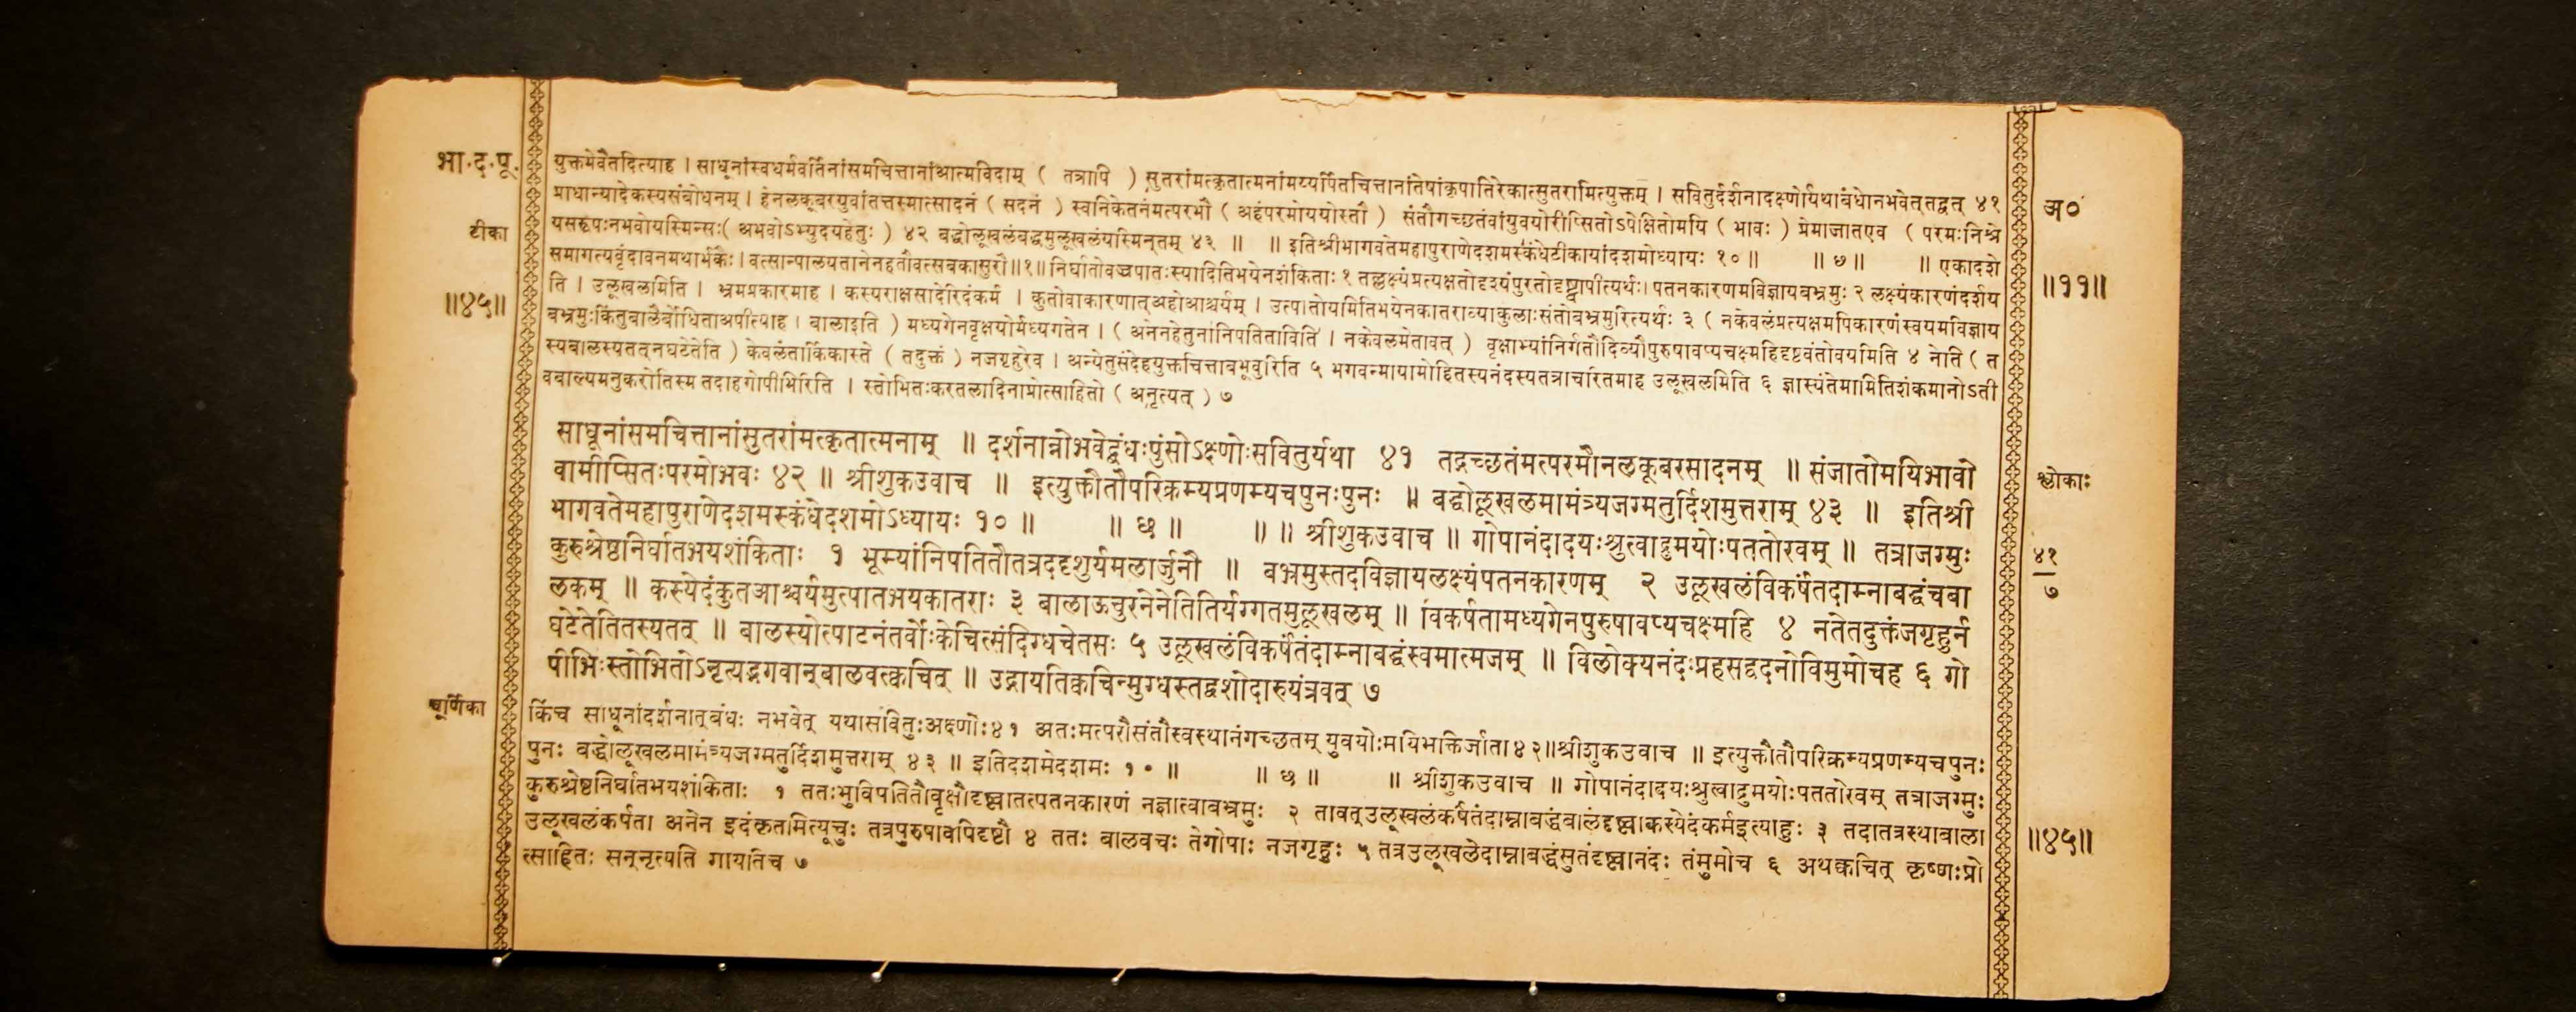 भा.द.पू.
टीका
॥४५॥
युक्तमेवैतदित्याह । साधूनांस्वधर्मवर्तिनांसमचित्तानांआत्मविदाम् ( तत्रापि ) सुतरांमत्कृतात्मनांमय्यर्पितचित्तानांतेषांकृपातिरेकात्सुतरामित्युक्तम् । सवितुर्दर्शनादक्ष्णोर्यथाबंधोनभवेत्तद्वत् ४१
प्राधान्यादेकस्यसंबोधनम् । हेनलकूबरयुवांतत्तस्मात्सादनं ( सदनं ) स्वनिकेतनंमत्परमौ ( अहंपरमोययोस्तौ ) संतौगच्छतंवांयुवयोरीप्सितोऽपेक्षितोमयि ( भावः ) प्रेमाजातएव ( परमःनिश्रे
यसरूपःनभवोयस्मिन्सः( अभवोऽभ्युदयहेतुः ) ४२ बद्धोलूखलंबद्धमुलूखलंयस्मिन्तम् ४३ ॥ ॥ इतिश्रीभागवतेमहापुराणेदशमस्कंधेटीकायांदशमोध्यायः १० ॥ ॥ छ ॥ ॥ एकादशे
समागत्यवृंदावनमथार्भकैः । वत्सान्पालयतानेनहतौवत्सबकासुरौ॥१॥ निर्घातोवज्रपातःस्यादितिभयेनशंकिताः १ तल्लक्ष्यंप्रत्यक्षतोदृश्यंपुरतोदृष्ट्वापीत्यर्थः। पतनकारणमविज्ञायबभ्रमुः २ लक्ष्यंकारणंदर्शय
ति । उलूखलमिति । भ्रमप्रकारमाह । कस्यराक्षसादेरिदंकर्म । कुतोवाकारणात्अहोआश्चर्यम् । उत्पातोयमितिभयेनकातराव्याकुलाःसंतोबभ्रमुरित्यर्थः ३ ( नकेवलंप्रत्यक्षमपिकारणंस्वयमविज्ञाय
बभ्रमुःकिंतुबालैर्बोधिताअपीत्याह । बालाइति ) मध्यगेनवृक्षयोर्मध्यगतेन । ( अनेनहेतुनानिपतिताविति । नकेवलमेतावत् ) वृक्षाभ्यांनिर्गतौदिव्यौपुरुषावप्यचक्ष्महिदृष्टवंतोवयमिति ४ नेति ( त
स्यबालस्यतत्नघटेतेति ) केवलंतार्किकास्ते ( तदुक्तं ) नजगृहुरेव । अन्येतुसंदेहयुक्तचित्ताबभूवुरिति ५ भगवन्मायामोहितस्यनंदस्यतत्राचरितमाह उलूखलमिति ६ ज्ञास्यंतेमामितिशंकमानोऽती
वबाल्यमनुकरोतिस्म तदाहगोपीभिरिति । स्तोभितःकरतलादिनाप्रोत्साहितो ( अनृत्यत् ) ७
साधूनांसमचित्तानांसुतरांमत्कृतात्मनाम् ॥ दर्शनान्नोभवेद्बंधःपुंसोऽक्ष्णोःसवितुर्यथा ४१ तद्गच्छतंमत्परमौनलकूबरसादनम् ॥ संजातोमयिभावो
वामीप्सितःपरमोभवः ४२ ॥ श्रीशुकउवाच ॥ इत्युक्तौतौपरिक्रम्यप्रणम्यचपुनःपुनः ॥ बद्धोलूखलमामंत्र्यजग्मतुर्दिशमुत्तराम् ४३ ॥ इतिश्री
भागवतेमहापुराणेदशमस्कंधेदशमोऽध्यायः १० ॥ ॥ छ ॥ ॥ ॥ श्रीशुकउवाच ॥ गोपानंदादयःश्रुत्वाद्रुमयोःपततोरवम् ॥ तत्राजग्मुः
कुरुश्रेष्ठनिर्घातभयशंकिताः १ भूम्यांनिपतितौतत्रददृशुर्यमलार्जुनौ ॥ बभ्रमुस्तदविज्ञायलक्ष्यंपतनकारणम् २ उलूखलंविकर्षंतंदाम्नाबद्धंचबा
लकम् ॥ कस्येदंकुतआश्चर्यमुत्पातभयकातराः ३ बालाऊचुरनेनेतितिर्यग्गतमुलूखलम् ॥ विकर्षतामध्यगेनपुरुषावप्यचक्ष्महि ४ नतेतदुक्तंजगृहुर्न
घटेतेतितस्यतत् ॥ बालस्योत्पाटनंतर्वोःकेचित्संदिग्धचेतसः ५ उलूखलंविकर्षंतंदाम्नाबद्धंस्वमात्मजम् ॥ विलोक्यनंदःप्रहसद्वदनोविमुमोचह ६ गो
पीभिःस्तोभितोऽनृत्यद्भगवान्बालवत्क्वचित् ॥ उद्गायतिक्वचिन्मुग्धस्तद्वशोदारुयंत्रवत् ७
चूर्णिका
किंच साधूनांदर्शनात्बंधः नभवेत् यथासवितुःअक्ष्णोः४१ अतःमत्परौसंतौस्वस्थानंगच्छतम् युवयोःमयिभक्तिर्जाता४२॥श्रीशुकउवाच ॥ इत्युक्तौतौपरिक्रम्यप्रणम्यचपुनः
पुनः बद्धोलूखलमामंत्र्यजग्मतुर्दिशमुत्तराम् ४३ ॥ इतिदशमेदशमः १० ॥ ॥ छ ॥ ॥ श्रीशुकउवाच ॥ गोपानंदादयःश्रुत्वाद्रुमयोःपततोरवम् तत्राजग्मुः
कुरुश्रेष्ठनिर्घातभयशंकिताः १ ततःभुविपतितौवृक्षौदृष्ट्वातत्पतनकारणं नज्ञात्वाबभ्रमुः २ तावत्उलूखलंकर्षंतंदाम्नाबद्धंबालंदृष्ट्वाकस्येदंकर्मइत्याहुः ३ तदातत्रस्थाबाला
उलूखलंकर्षता अनेन इदंकृतमित्यूचुः तत्रपुरुषावपिदृष्टौ ४ ततः बालवचः तेगोपाः नजगृहुः ५ तत्रउलूखलेदाम्नाबद्धंसुतंदृष्ट्वानंदः तंमुमोच ६ अथक्वचित् कृष्णःप्रो
त्साहितः सन्नृत्यति गायतिच ७
अ०
॥११॥
श्लोकाः
४१
७
॥४५॥